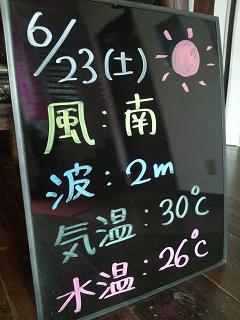 6/23(土)
風:南
波:2m
気温:30℃
水温:26℃